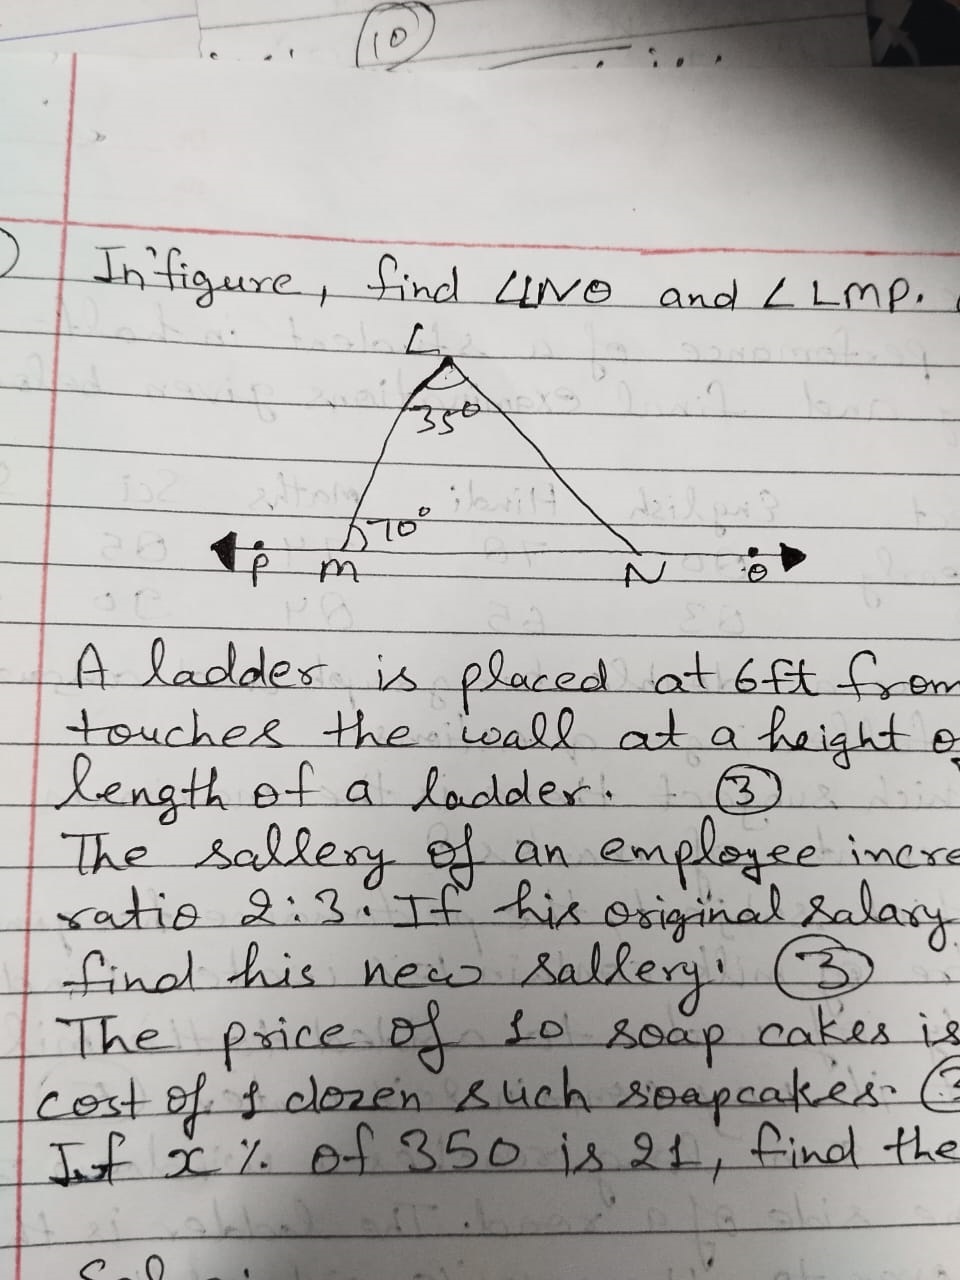 10
In figure, find ∠LNO and ∠LMP.
L
35°
70°
P M N O
A ladder is placed at 6ft from
touches the wall at a height
length of a ladder. 3
The sallery of an employee incre
ratio 2:3. If his original salary
find his new sallery. 3
The price of 10 soap cakes is
cost of 1 dozen such soapcakes.
If x % of 350 is 21, find the